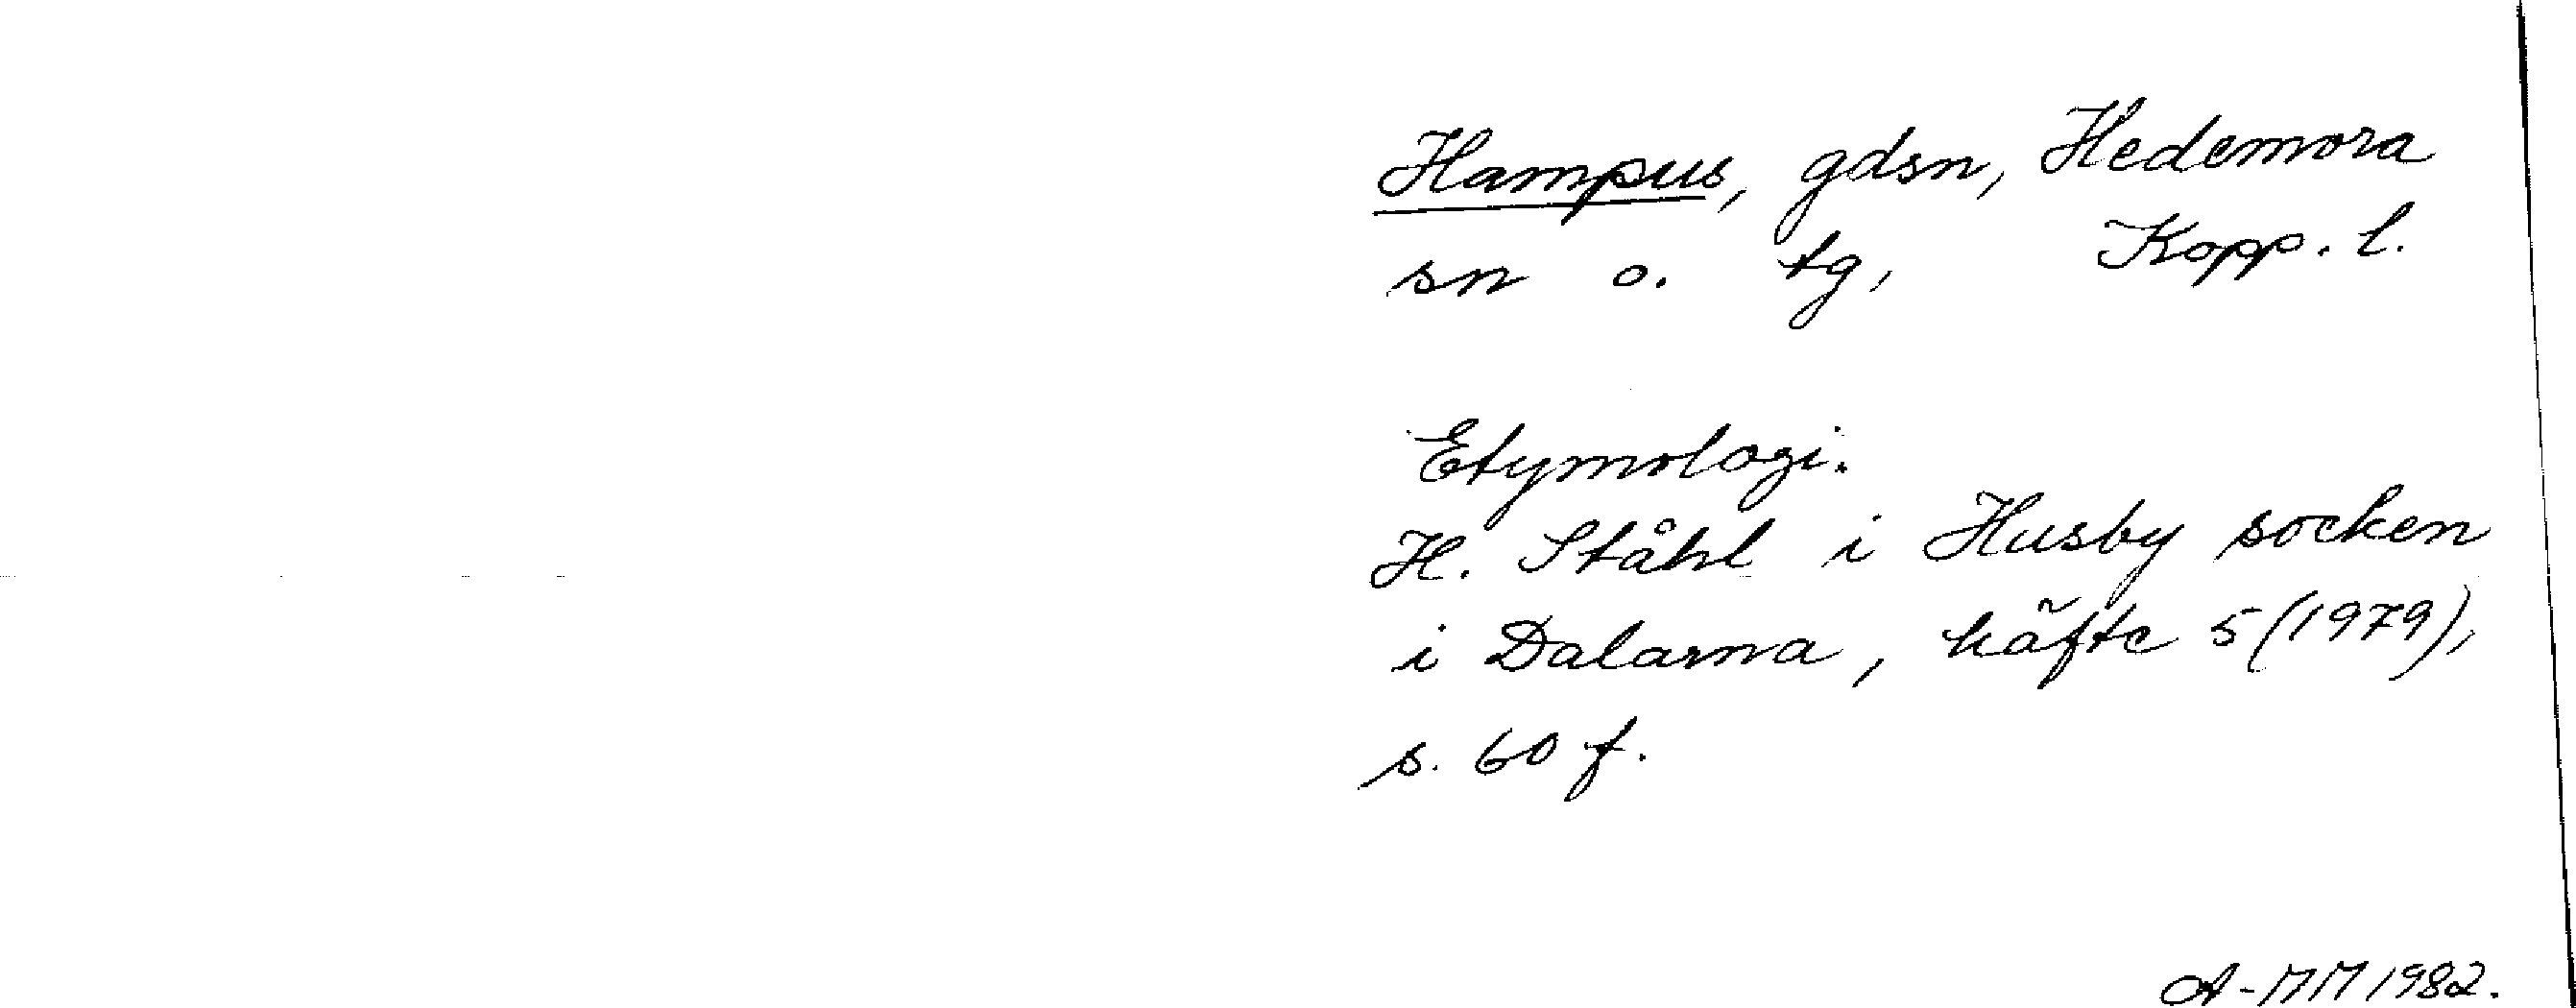 Hampus, gdsn, Hedemora
sn o. tg, Kopp. l.
Etymologi.
H. Ståhl i Husby socken
i Dalarna, häfte 5 (1979),
s. 60 f.
A-MM 1982.